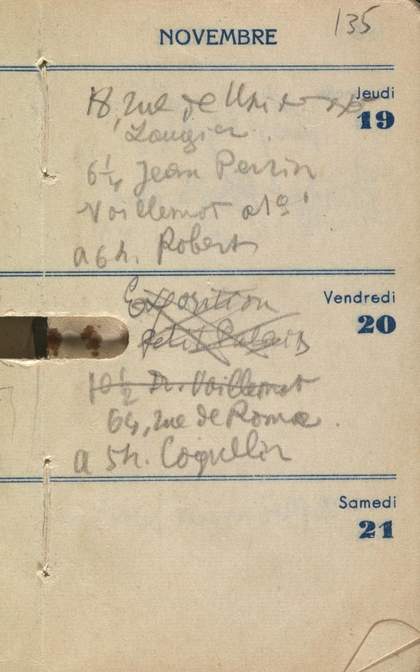 135
NOVEMBRE
Jeudi
19
18, rue de
Laugier.
6 1/4 Jean Perrin
Voillemot
a 6 h. Robert
Vendredi
20
Exposition
Petit Palais
10 1/2 Dr. Voillemot
64, rue de Rome.
a 5 h. Coquelin
Samedi
21